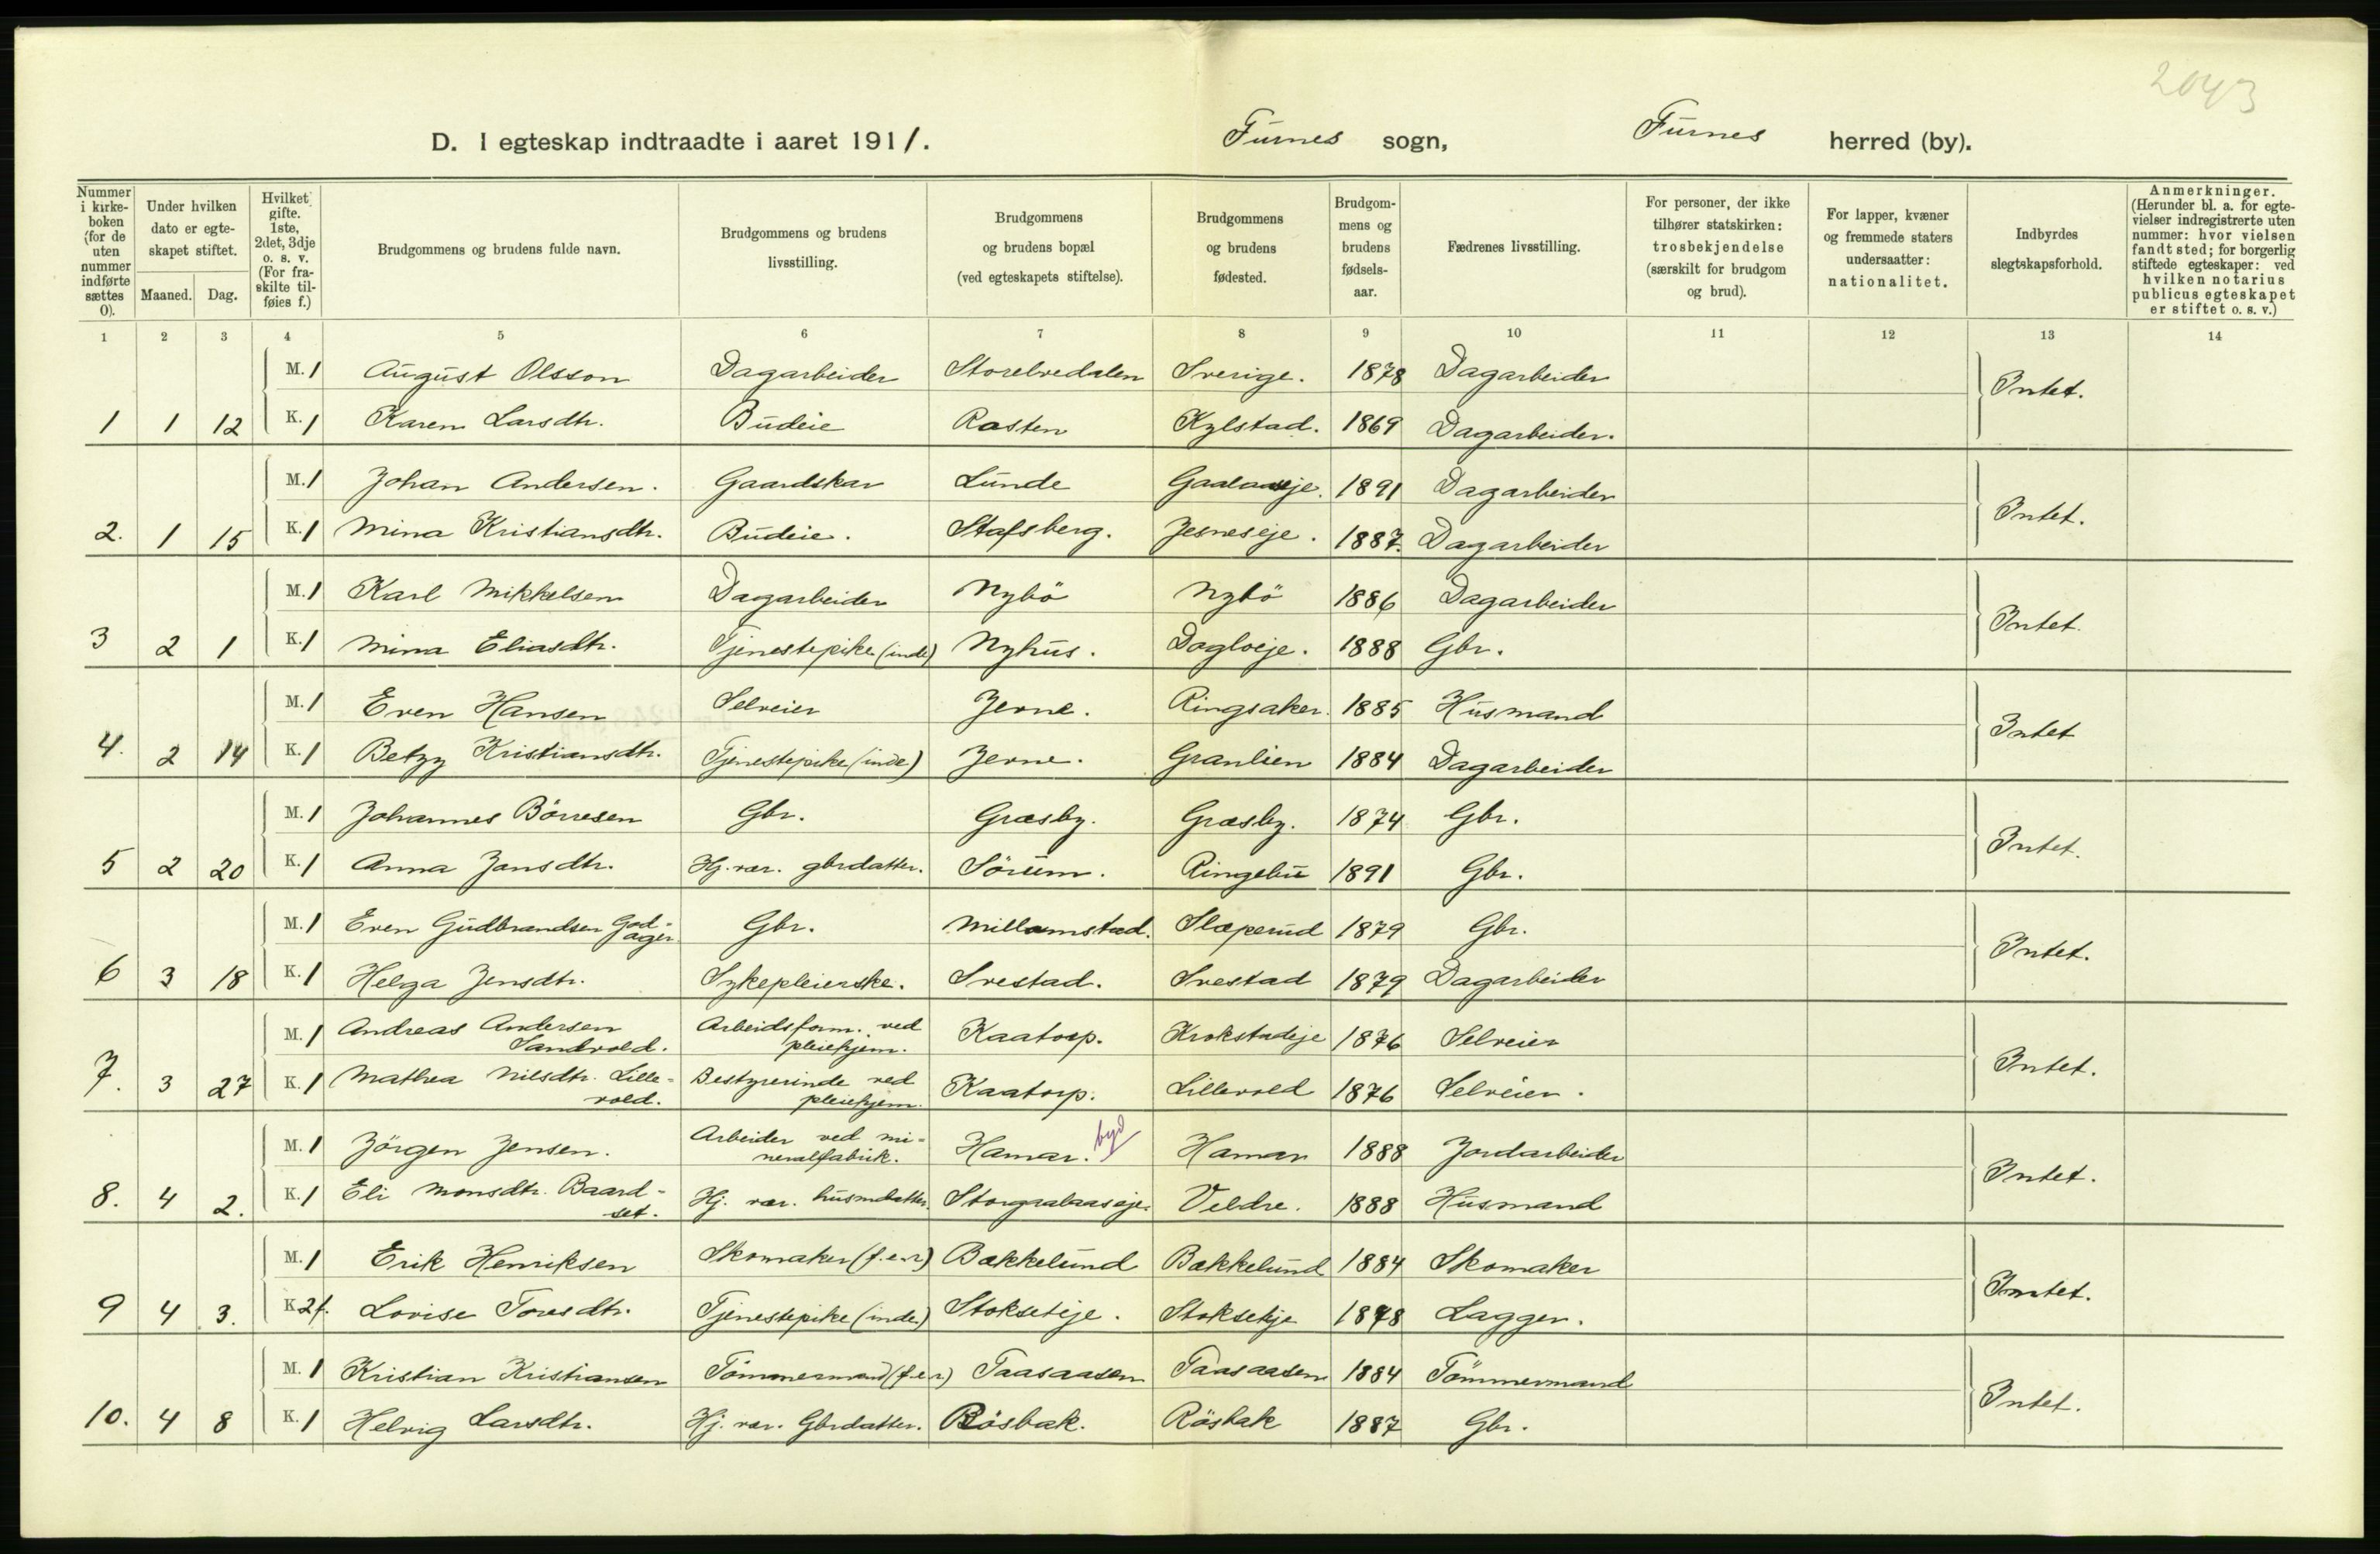 2043
D. I egteskap indtraadte i aaret 1911. Furnes sogn, Furnes herred (by).
Nummer i kirke-boken (for de uten nummer indførte sættes 0). Under hvilken dato er egte-skapet stiftet. Maaned. Dag. Hvilket gifte. 1ste, 2det, 3dje o. s. v. (For fra-skilte til-føies f.) Brudgommens og brudens fulde navn. Brudgommens og brudens livsstilling. Brudgommens og brudens bopæl (ved egteskapets stiftelse). Brudgommens og brudens fødested. Brudgom-mens og brudens fødsels-aar. Fædrenes livsstilling. For personer, der ikke tilhører statskirken: trosbekjendelse (særskilt for brudgom og brud). For lapper, kvæner og fremmede staters undersaatter: nationalitet. Indbyrdes slegtskapsforhold. Anmerkninger. (Herunder bl. a. for egte-vielser indregistrerte uten nummer: hvor vielsen fandt sted; for borgerlig stiftede egteskaper: ved hvilken notarius publicus egteskapet er stiftet o. s. v.)
1 2 3 4 5 6 7 8 9 10 11 12 13 14
M. 1 August Olsson Dagarbeider Storelvedalen Sverige. 1878 Dagarbeider Intet.
1 1 12 K. 1 Karen Larsdtr. Budeie Rasten Kylstad. 1869 Dagarbeider.
M. 1 Johan Andersen. Gaardskar Lunde Gaalaaseje. 1891 Dagarbeider Intet.
2. 1 15 K. 1 Mina Kristiansdtr. Budeie. Stafsberg. Jesneseje. 1887. Dagarbeider
M. 1 Karl Mikkelsen Dagarbeider Nybö Nybö 1886 Dagarbeider Intet.
3 2 1 K. 1 Mina Eliasdtr. Tjenestepike (inde) Nyhus. Dagloeje. 1888 Gbr.
M. 1 Even Hansen Selveier Jerne. Ringsaker. 1885 Husmand Intet
4. 2 14 K. 1 Betzy Kristiansdtr. Tjenestepike (inde) Jerne. Granlien 1884 Dagarbeider
M. 1 Johannes Börresen Gbr. Græsby. Græsby. 1874 Gbr. Intet.
5 2 20 K. 1 Anna Jansdtr. Hj. vær. gbrdatter. Sörum. Ringebu 1891 Gbr.
M. 1 Even Gudbrandsen God-ager Gbr. Millomstad. Slæperud 1879 Gbr. Intet.
6 3 18 K. 1 Helga Jensdtr. Sykepleierske. Svestad. Svestad 1879 Dagarbeider
M. 1 Andreas Andersen Sandvold. Arbeidsform. ved pleiehjem. Kaatorp. Krokstadeje 1876 Selveier Intet.
7. 3 27 K. 1 Mathea Nilsdtr. Lille-vold. Bestyrerinde ved pleiehjem. Kaatorp. Lillevold 1876 Selveier.
M. 1 Jörgen Jensen. Arbeider ved mi-neralfabrik. Hamar. byd Hamar 1888 Jordarbeider Intet.
8. 4 2. K. 1 Eli Monsdtr. Baard-set. Hj. vær. husmdatter. Storgaalaaseje. Veldre. 1888 Husmand
M. 1 Erik Henriksen Skomaker (f.e.r) Bækkelund Bækkelund 1884 Skomaker Intet.
9 4 3. K. 2f. Lovise Toresdtr. Tjenestepike (inde) Stokseteje. Stokseteje 1878 Lægger.
M. 1 Kristian Kristiansen Tömmermand (f.e.r) Taasaasen Taasaasen 1884 Tömmermand Intet.
10. 4 8 K. 1 Helvig Larsdtr. Hj. vær. Gbrdatter. Rösbak. Rösbak 1887 Gbr.